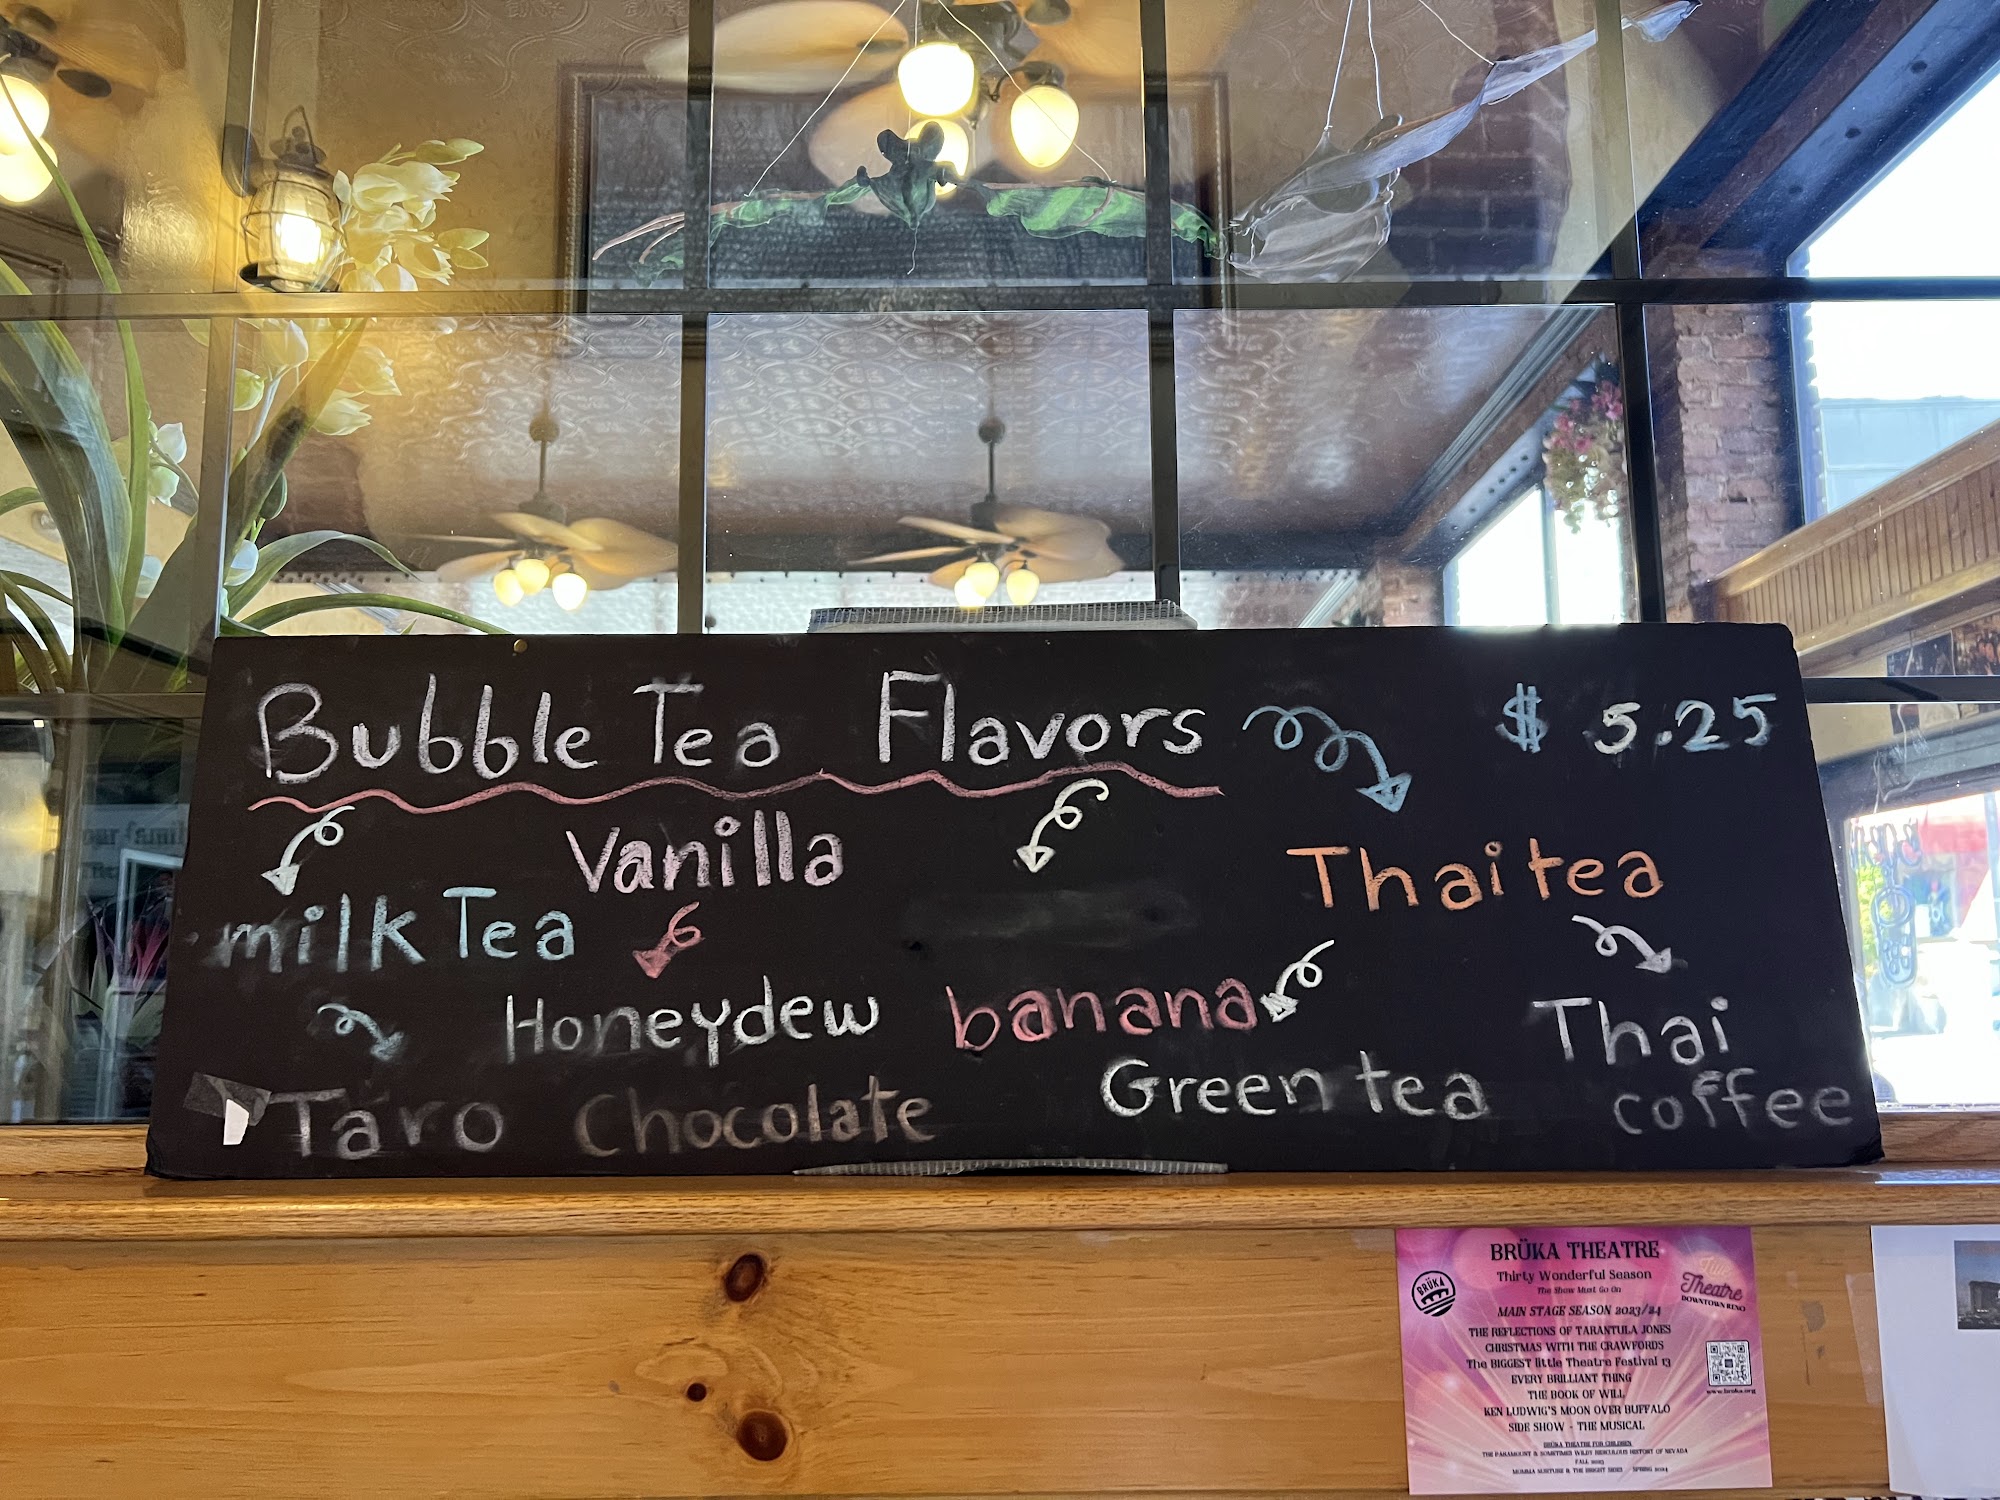 Bubble Tea Flavors $ 5.25
Vanilla
milk Tea
Thai tea
Honeydew
banana
Thai
coffee
Taro
Chocolate
Green tea
our famil
BRÜKA THEATRE
Thirty Wonderful Season
The Show Must Go On
BRÜKA
Theatre
DOWNTOWN RENO
MAIN STAGE SEASON 2023/24
THE REFLECTIONS OF TARANTULA JONES
CHRISTMAS WITH THE CRAWFORDS
The BIGGEST little Theatre Festival 13
EVERY BRILLIANT THING
THE BOOK OF WILL
KEN LUDWIG'S MOON OVER BUFFALO
SIDE SHOW - THE MUSICAL
www.bruka.org
BRÜKA THEATRE FOR CHILDREN
THE PARAMOUNT & SOMETIMES WILDY RIDICULOUS HISTORY OF NEVADA
FALL 2023
MOMMA NURTURE & THE BRIGHT SIDES SPRING 2024